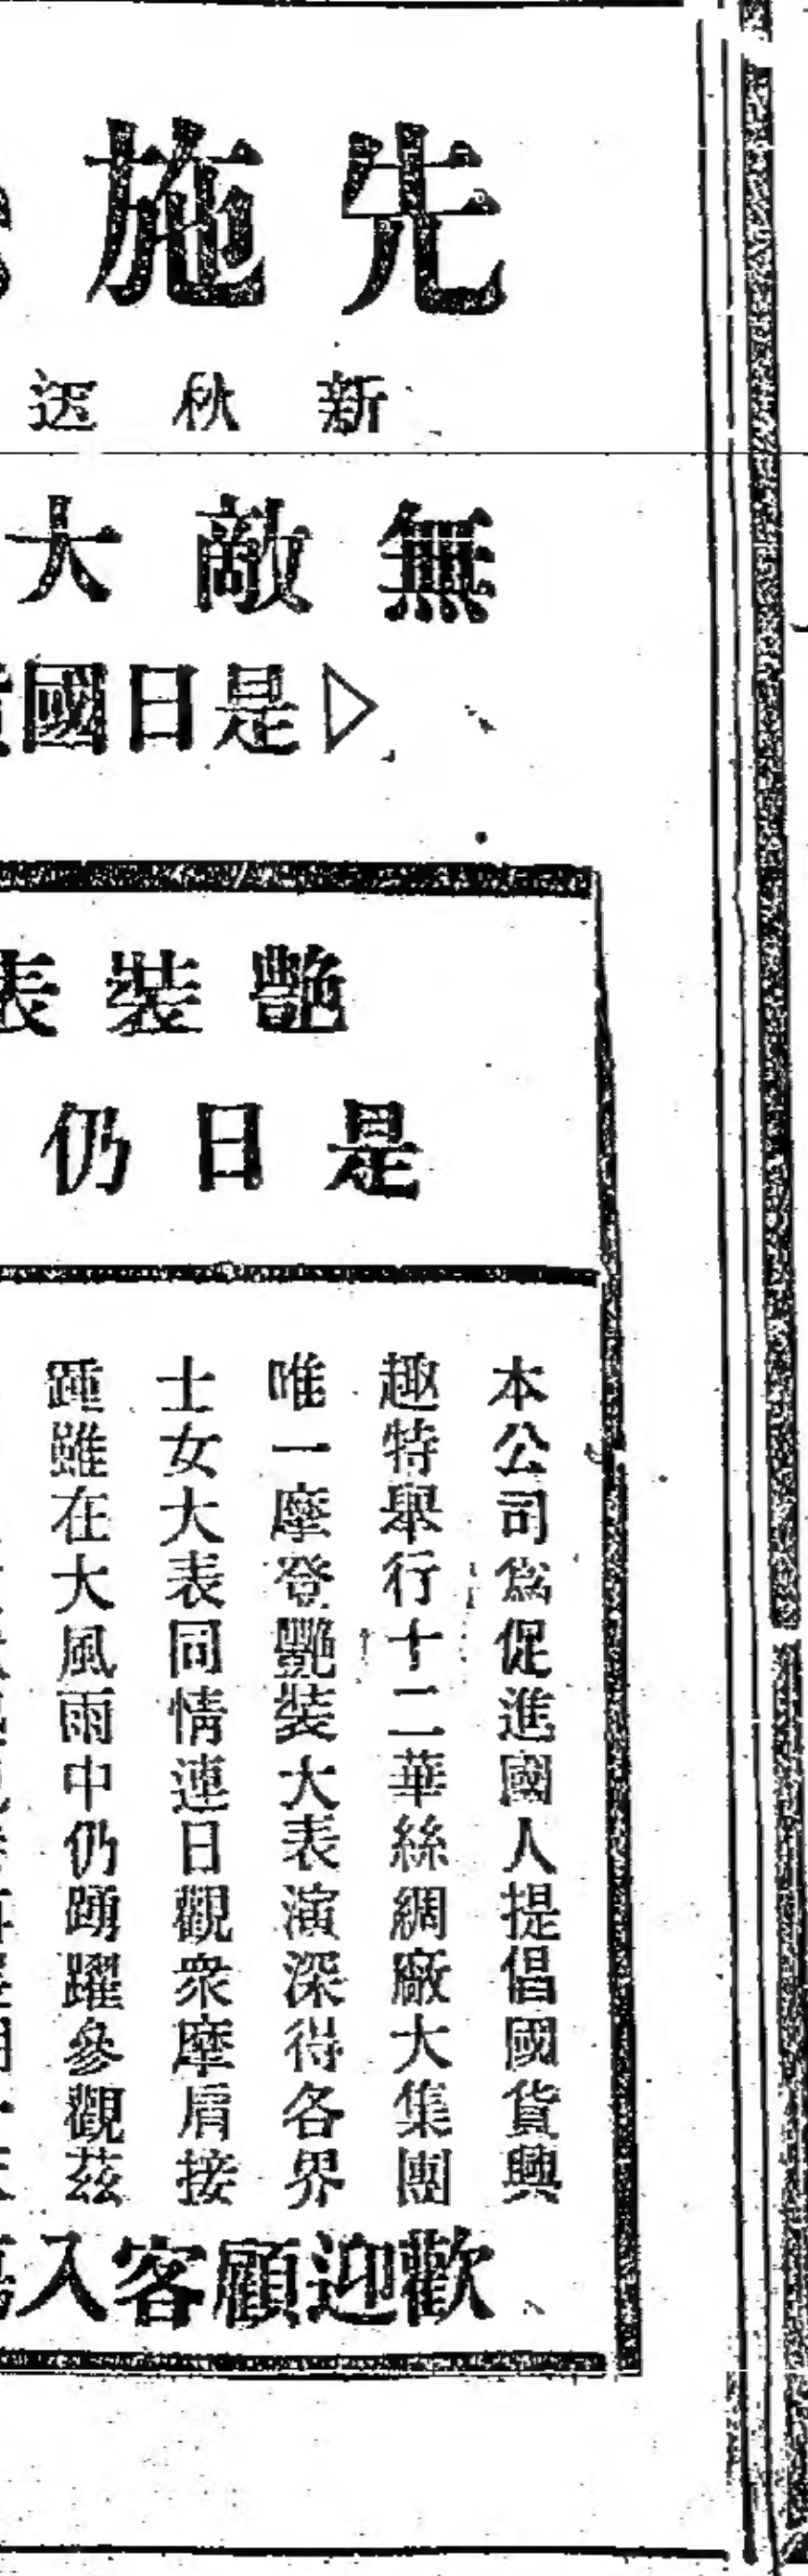 先施
新秋送
無敵大
▷是日國
艷裝表
是日仍
本公司為促進國人提倡國貨興
趣特舉行十二華絲綢廠大集團
唯一摩登艷裝大表演深得各界
士女大表同情連日觀衆摩肩接
踵雖在大風雨中仍踴躍參觀茲
歡迎顧客入